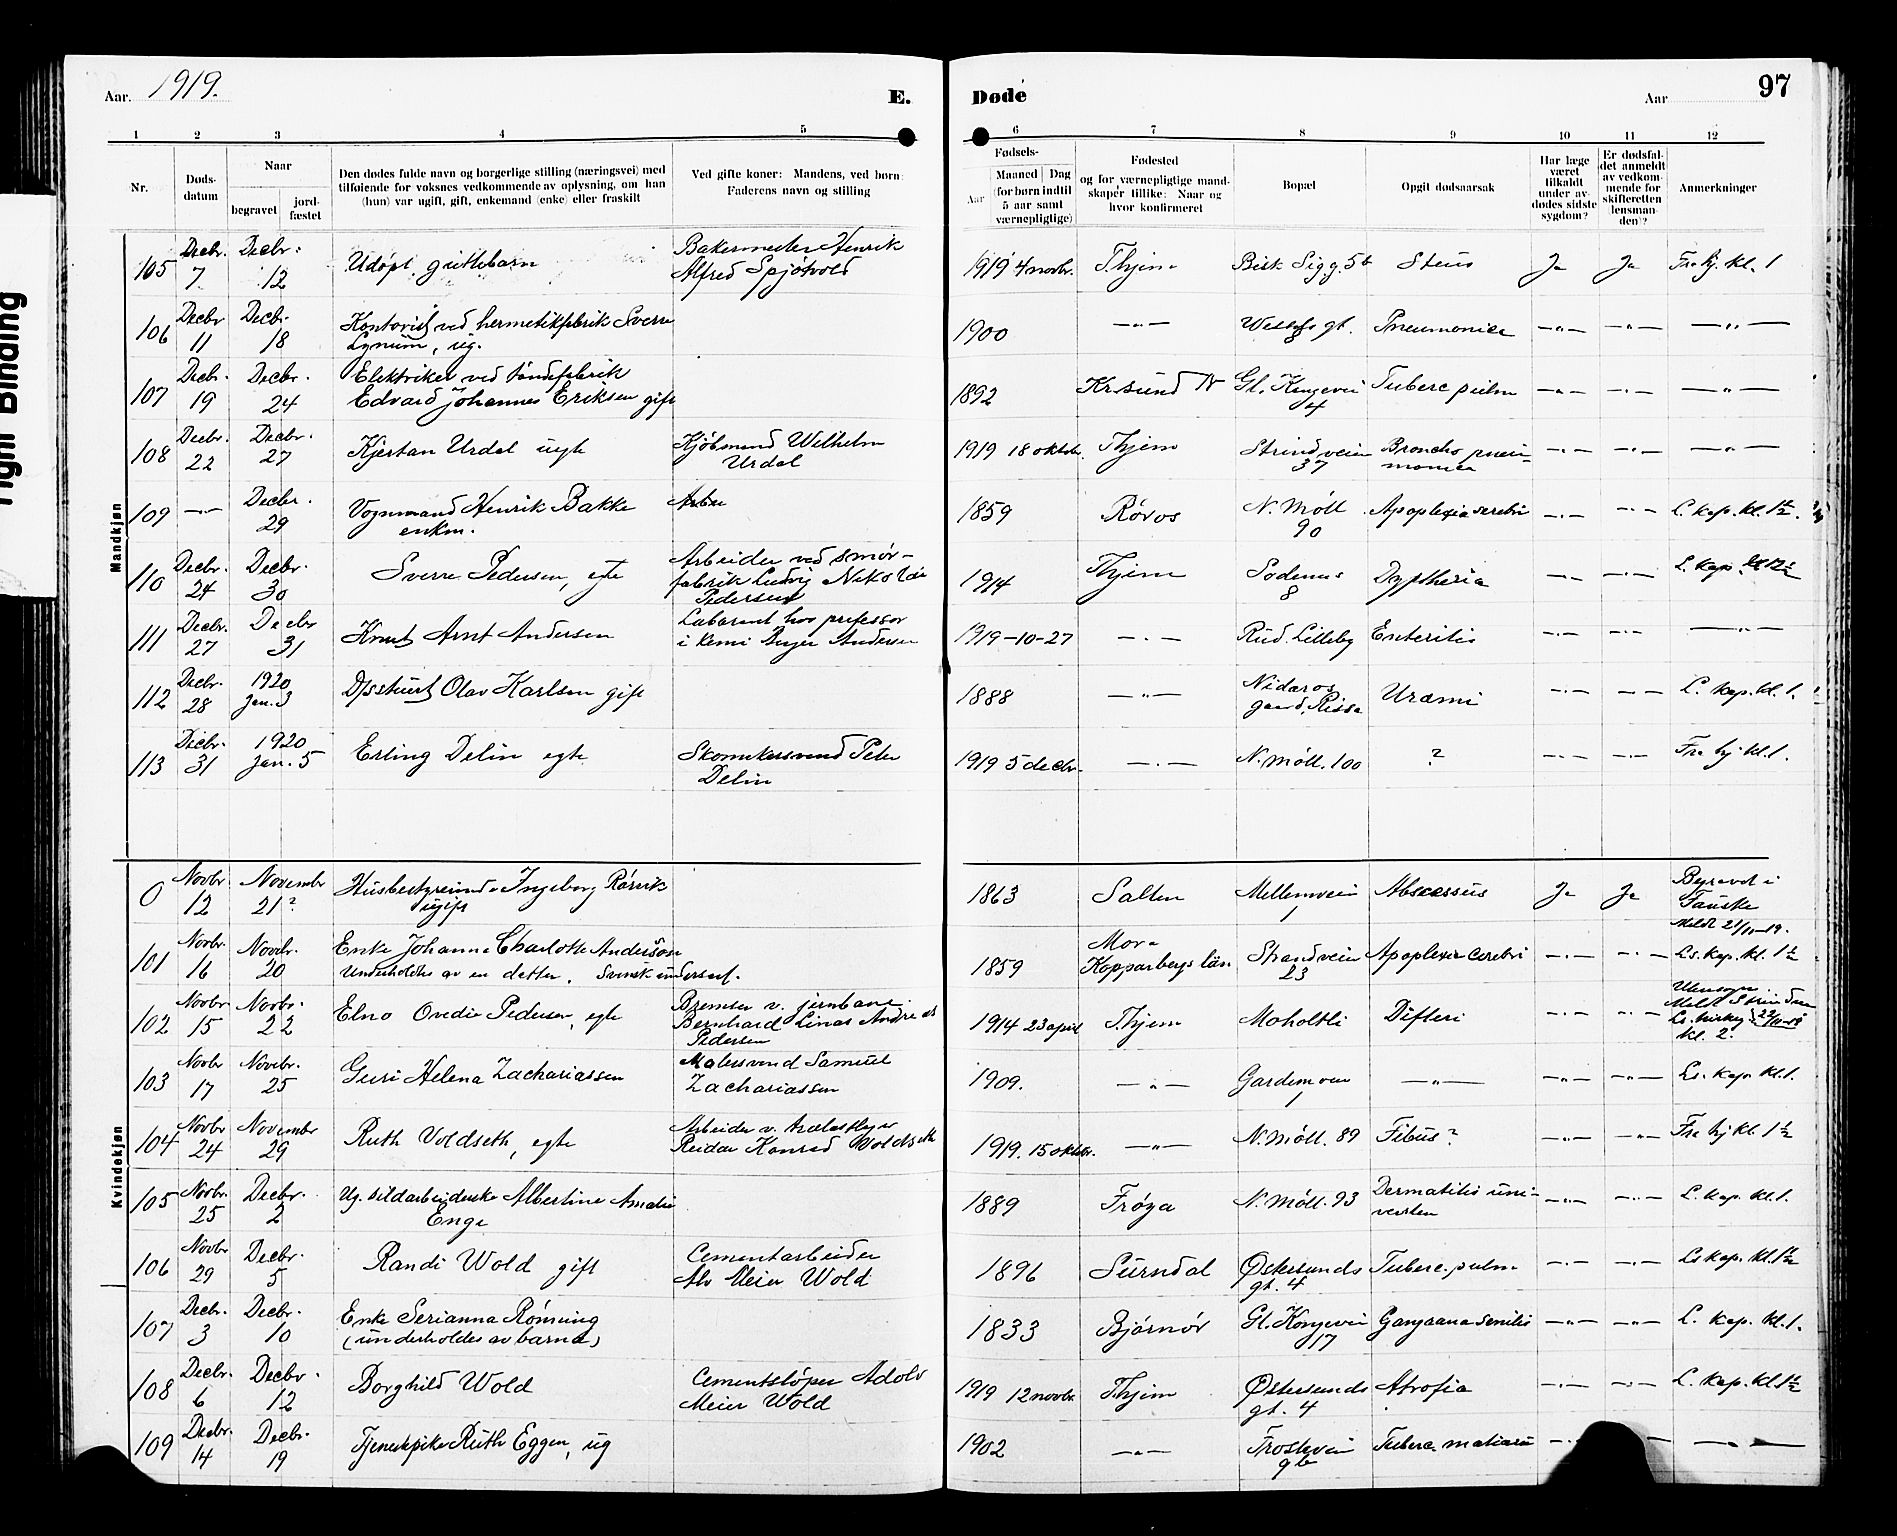 Aar. 1919.
E.
Døde
Aar
97
1 2 3 4 5 6 7 8 9 10 11 12
Nr.
Døds-
datum
Naar
begravet
jord-
fæstet
Den dødes fulde navn og borgerlige stilling (næringsvei) med
tilføiende for voksnes vedkommende av oplysning, om han
(hun) var ugift, gift, enkemand (enke) eller fraskilt
Ved gifte koner: Mandens, ved børn:
Faderens navn og stilling
Fødsels-
Aar
Maaned Dag
(for børn indtil
5 aar samt
værnepligtige)
Fødested
og for værnepligtige mand-
skaper tillike: Naar og
hvor konfirmeret
Bopæl
Opgit dødsaarsak
Har læge
været
tilkaldt
under av-
dødes sidste
sygdom?
Er dødsfal-
det anmeldt
av vedkom-
mende for
skifteretten
lensman-
den)?
Anmerkninger
Tight Binding
Mandkjøn
105 Decbr. 7 Decbr. 12 Udøpt guttebarn Bakermester Henrik
Alfred Spjøtvold 1919 4 novbr. Thjem Bisk Sigg. 5b Ja Ja Fra hj. kl. 1
106 Decbr 11 Decbr. 18 Kontorist ved hermetikfabrik Sverre
Lynum, ug. 1900 —"— gt. Pneumonica —"— —"— —"—
107 Decbr. 19 Decbr. 24 Elektriker ved tøndefabrik
Edvard Johannes Eriksen gift 1892 Kr.sund N Gl. Kongevei
4 Tuberc pulm —"— —"— —"—
108 Decbr. 22 Decbr. 27 Kjøbmand Wilhelm
Urdal 1919 18 oktobr. Thjem Strindveien
37 Broncho pneu-
monica —"— —"— —"—
109 —"— Decbr. 29 Vognmand Henrik Bakke
enkem. 1859 Røros N. Møll
90 Apoplexia cerebri —"— —"— L. kap. kl. 1½.
110 Decbr. 24 Decbr. 30 Sverre Pedersen, egte Arbeider ved smør-
fabrik Ludvig Nikolai
Pedersen 1914 Thjem
8 Dyptheria —"— —"— L. kap. kl 12½
111 Decbr. 27 Decbr 31 Knut Arnt Andersen Laborant hos professor
i kemi Andersen 1919-10-27 —"— Rud. Lilleby Enteritis —"— —"— —"—
112 Decbr. 28 1920 Jan. 3 Olav Karlsen gift 1888 —"— Nidaros
gaard, Rissa Uræmi —"— —"— L. kap. kl. 1.
113 Decbr. 31 1920 Jan. 5 Erling Delin egte Skomakersvend Peter
Delin 1919 5 decbr. —"— N. Møll. 100 ? —"— —"— Fra hj kl. 1.
Kvindekjøn
0 Novbr. 12 Novembr 21? Husbestyrerinde Ingeborg Rørvik
ugift 1863 Salten Mellemveien
1 Abscessus Ja Ja Begravet i
Fauske
Meldt 21/11-19.
101 Novbr. 16 Novbr. 20 Enke Johanna Charlotte Andersson
Underholdes av en datter. Svensk undersaat. 1859 Mora
Kopparbergs län Strandveien
23 Apoplexia cerebri —"— —"— Ls. kap. kl. 1½
102 Novbr. 15 Novbr. 22 Elna Ovedie Pedersen, egte Bremser v. jernbane
Bernhard Linas Andreas
Pedersen 1914 23 april Thjem Moholtli Difteri —"— —"— Utensogn
Meldt Strinden
22/11-19
kl. 2.
103 Novbr 17 Novbr. 25 Guri Helena Zachariassen Malersvend Samuel
Zachariassen 1909. —"— Gardemoen
1 —"— —"— —"— Ls. kap. kl. 1.
104 Novbr 24 Novembr 29 Ruth Voldseth, egte Arbeider v.
Reidar Konrad Voldseth 1919. 15 oktobr. —"— N. Møll. 89 —"— —"— Fra hj kl. 1½
105 Novbr. 25 Decbr. 2 Ug. sildarbeiderske Albertine Amalie
Enge 1889 Frøya N. Møll. 93 Dermatitis uni-
—"— —"— L. kap. kl. 1.
106 Novbr 29 Decbr. 5 Randi Wold gift Cementarbeider
Meier Wold 1896 Surndal Østersunds
gt. 4 Tuberc. pulm —"— —"— Ls kap. kl. 1½
107 Decbr. 3 Decbr. 10 Enke Serianna Rønning
(underholdes av barna) 1833 Bjørnør Gl. Kongevei
17 Gangræna senilis —"— —"— L. kap. kl. 1.
108 Decbr. 6 Decbr. 12 Borghild Wold Cementstøper Adolv
Meier Wold 1919 12 novbr. Thjem Østersunds
gt. 4 Atrofia —"— —"— L. kap. kl 1½
109 Decbr. 14 Decbr. 19 Tjenestepike Ruth Eggen, ug 1902 —"— Frostavei
9b Tuberc. —"— —"—